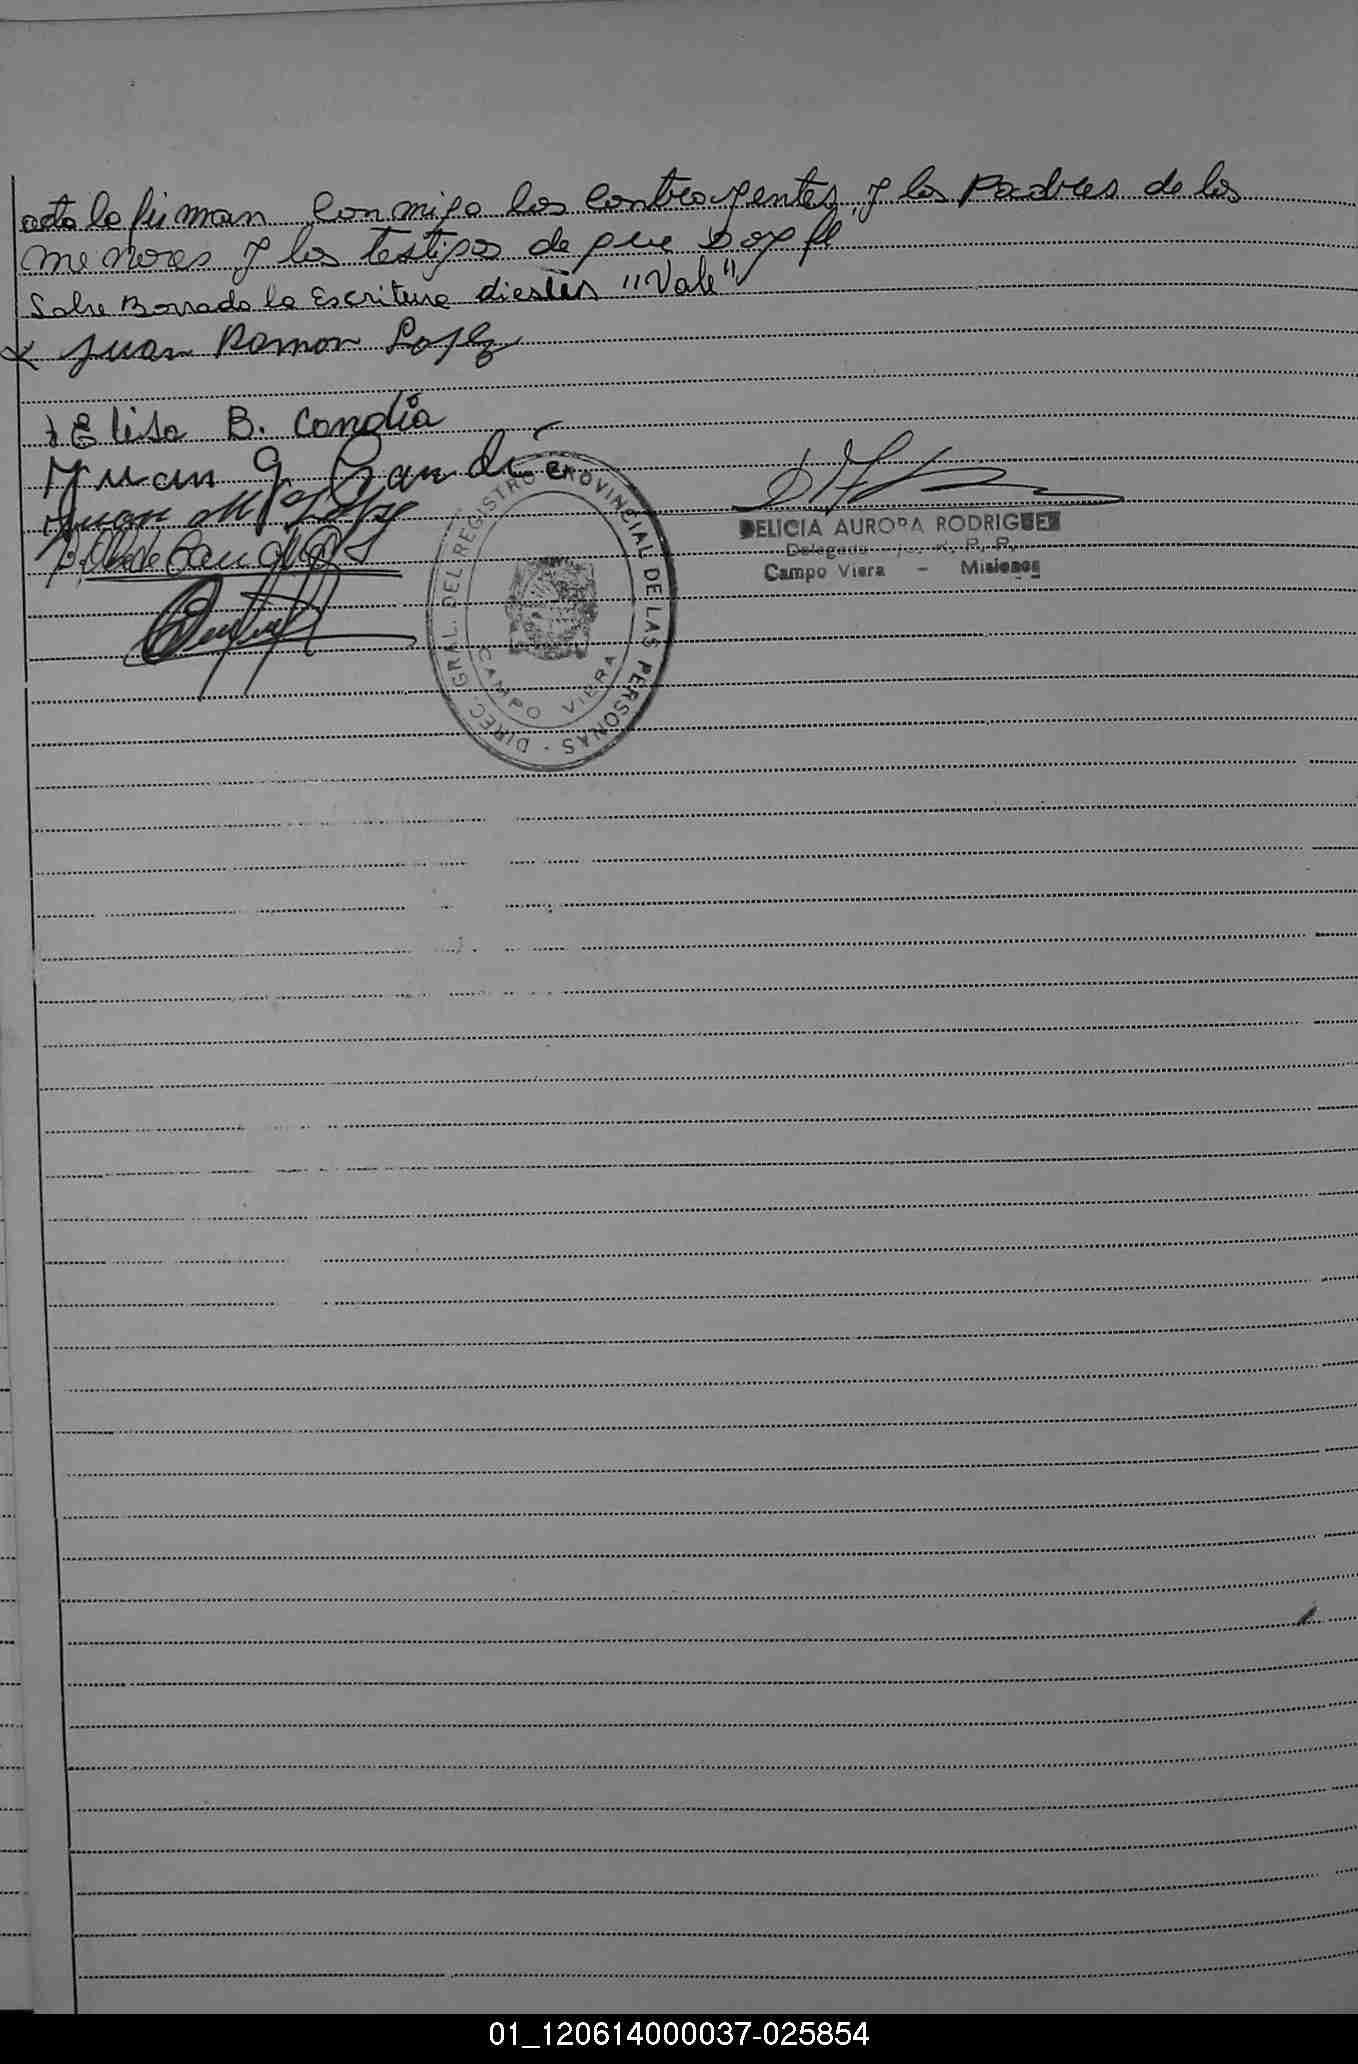 acto la firman conmigo los contrayentes, y los Padres de los
menores y los testigos de que doy fe
Sobre Borrado la Escritura dieziseis "Vale"
x Juan Ramon Lopez
x Elisa B. Candia
Juan G. Candia
Juan M. Lopez
DIREC. GRAL. DEL REGISTRO PROVINCIAL DE LAS PERSONAS -
CAMPO VIERA
DELICIA AURORA RODRIGUEZ
Delegada R. P. P.
Campo Viera - Misiones
01_120614000037-025854